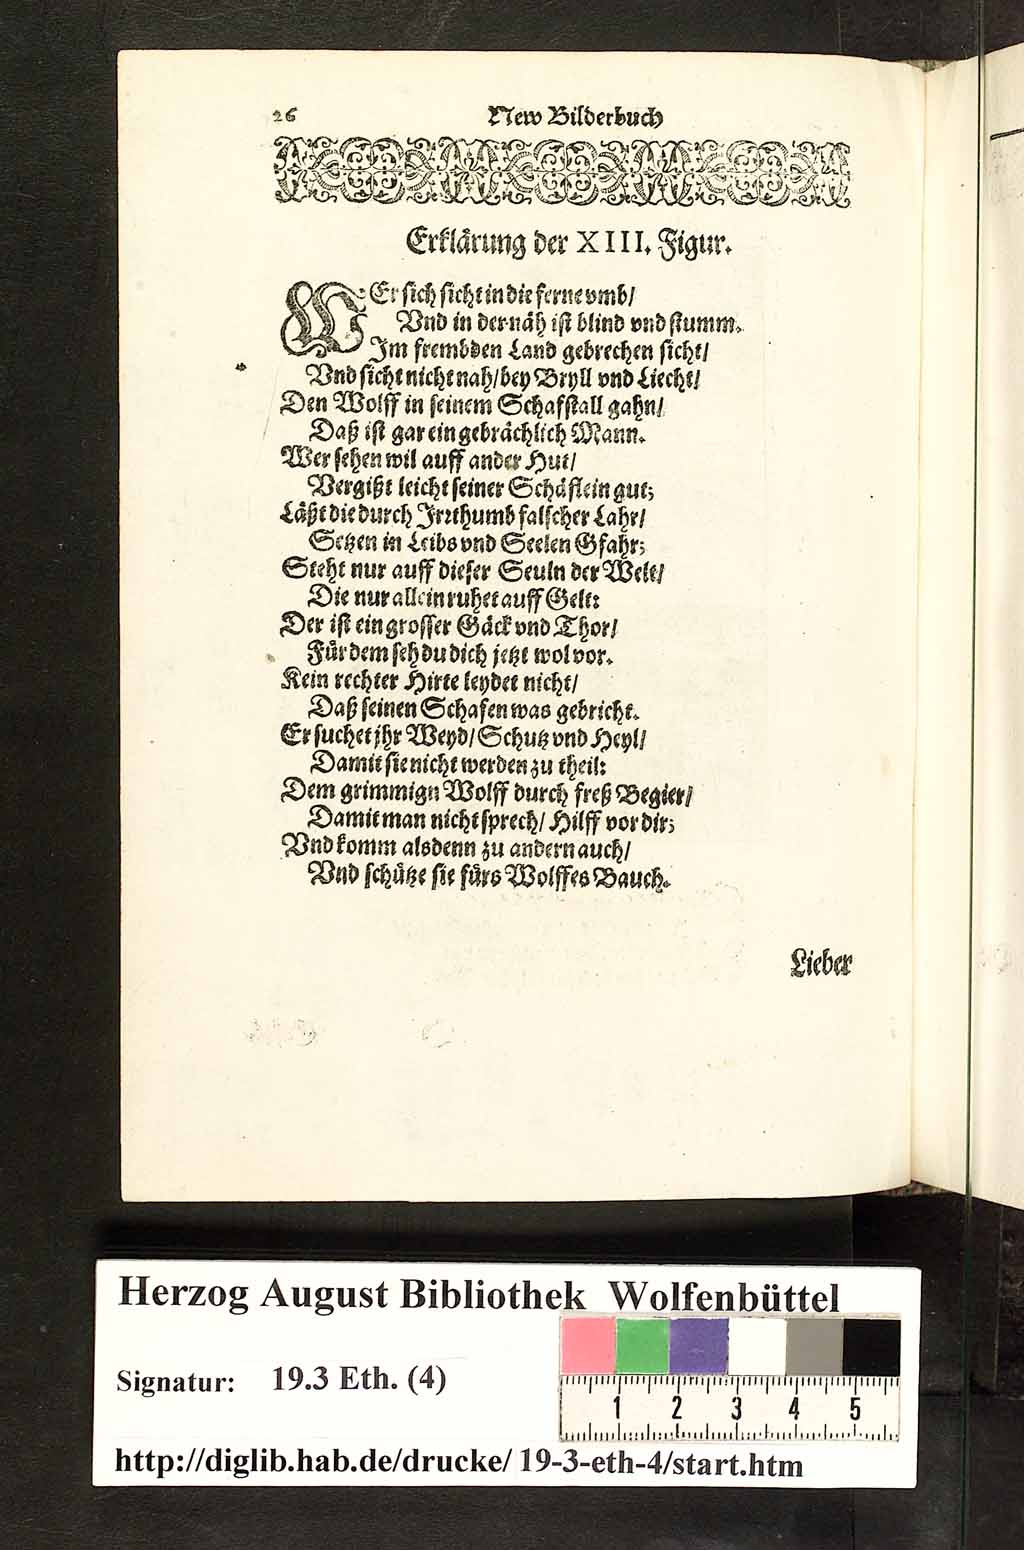 26 New Bilderbuch
Erklärung der XIII. Figur.
WEr sich sicht in die ferne vmb/
Vnd in der näh ist blind vnd stumm.
Im frembden Land gebrechen sicht/
Vnd sicht nicht nah/ bey Bryll vnd Liecht/
Den Wolff in seinem Schafstall gahn/
Daß ist gar ein gebrächlich Mann.
Wer sehen wil auff ander Hut/
Vergißt leicht seiner Schäflein gut;
Läßt die durch Irrthumb falscher Lahr/
Setzen in Leibs vnd Seelen Gfahr;
Steht nur auff dieser Seuln der Welt/
Die nur allein ruhet auff Gelt:
Der ist ein grosser Gäck vnd Thor/
Für dem seh du dich jetzt wol vor.
Kein rechter Hirte leydet nicht/
Daß seinen Schafen was gebricht.
Er suchet jhr Weyd/ Schutz vnd Heyl/
Damit sie nicht werden zu theil:
Dem grimmign Wolff durch freß Begier/
Damit man nicht sprech/ Hilff vor dir;
Vnd komm alsdenn zu andern auch/
Vnd schütze sie fürs Wolffes Bauch.
Lieber
Herzog August Bibliothek Wolfenbüttel
Signatur: 19.3 Eth. (4)
1 2 3 4 5
http://diglib.hab.de/drucke/19-3-eth-4/start.htm